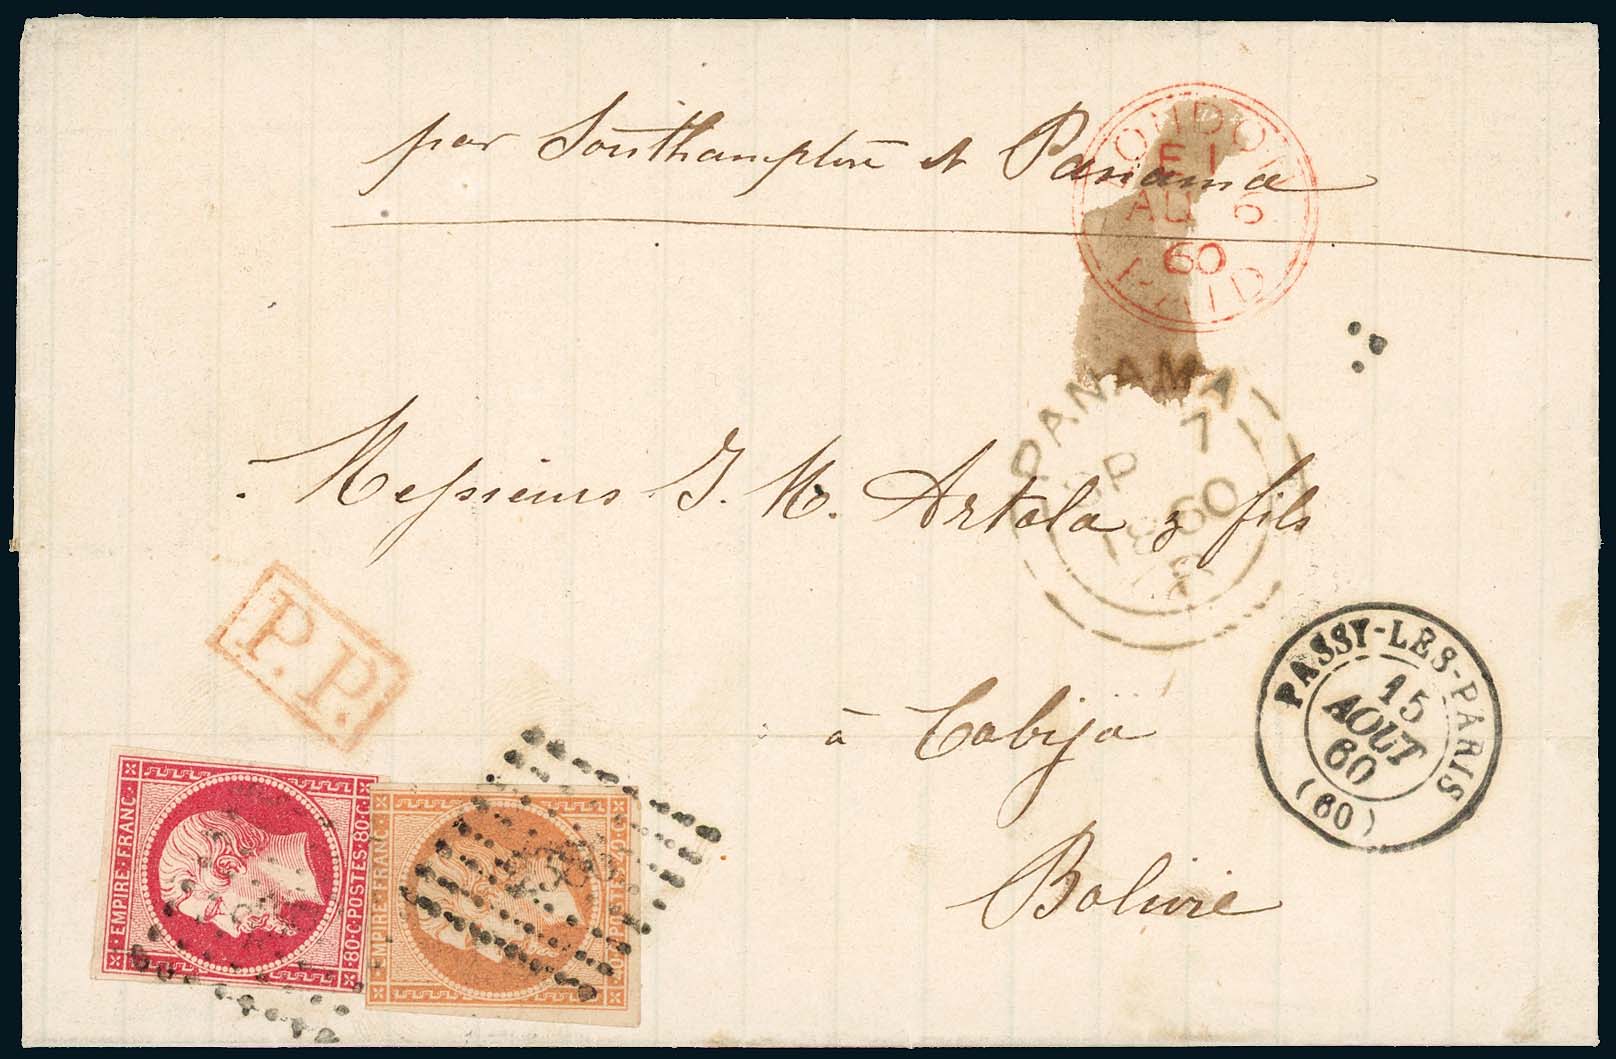 par Southampton et Panama
LONDON
E I
AU 6
60
PAID
PANAMA
7
SP
1860
Messieurs J. M. Artola & fils
P.P.
PASSY-LES-PARIS
15
AOUT
60
(60)
à Cobija
Bolivie
EMPIRE·FRANC·
80·C·POSTES·80·C·
EMPIRE·FRANC·
40·C·POSTES·40·C·